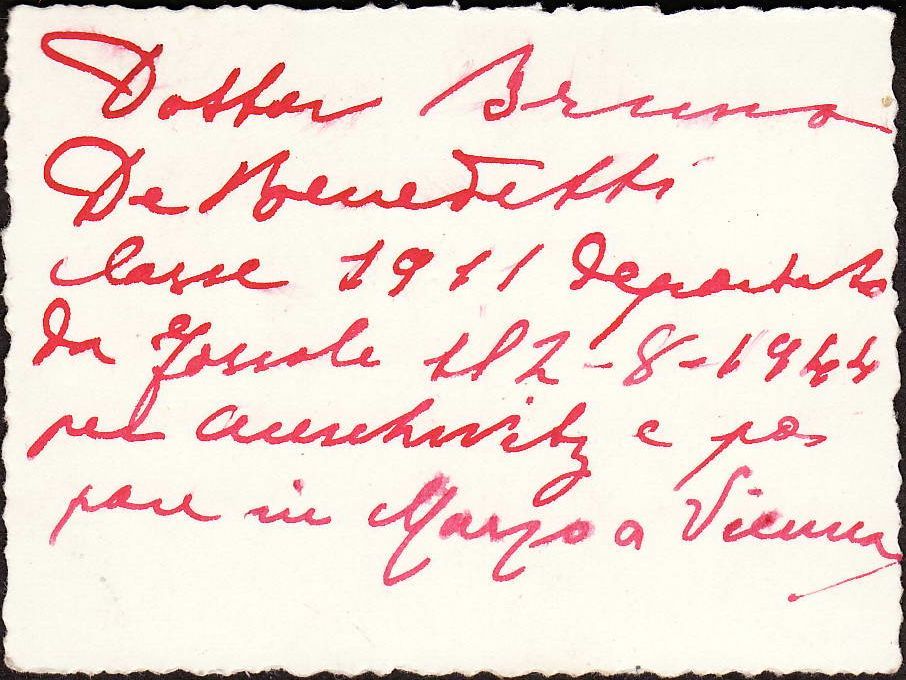 Dottor Bruno
De Benedetti
classe 1911 deportato
da Fossole il 2-8-1944
per Auschwitz e
pare in Marzo a Vienna